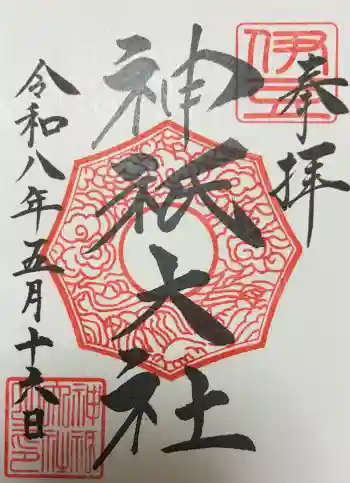 奉拝
伊豆
神祇大社
令和八年五月十六日